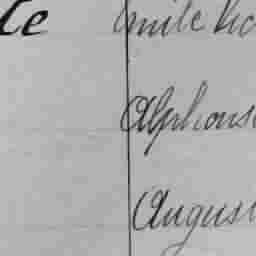 le Emile Vic
Alphonse
August